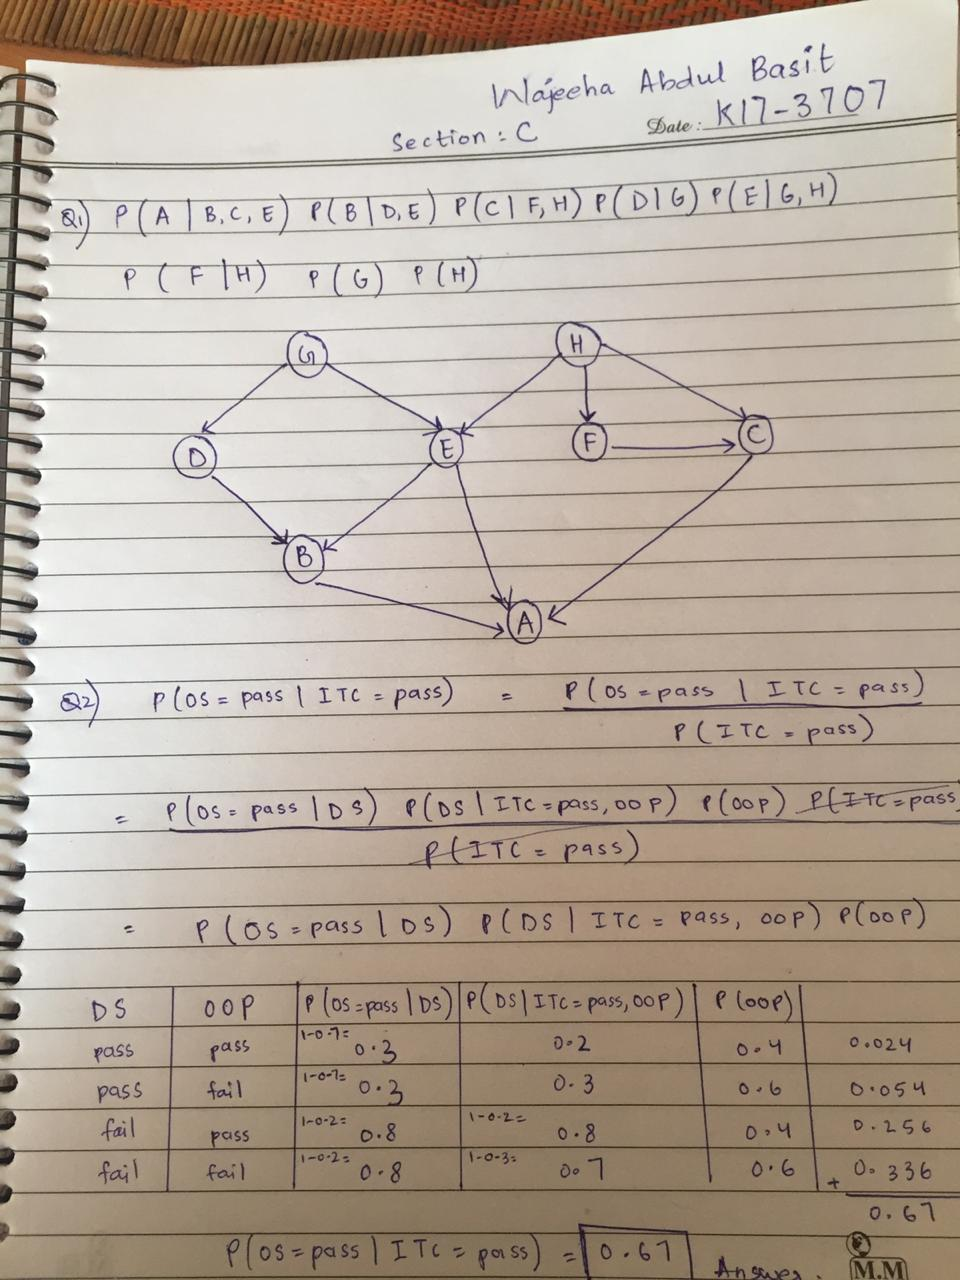 Wajeeha Abdul Basit
Section : C Date: K17-3707
Q1) P(A | B, C, E) P(B | D, E) P(C | F, H) P(D | G) P(E | G, H)
P(F | H) P(G) P(H)
G H
D E F C
B
A
Q2) P(OS = pass | ITC = pass) = P(OS = pass | ITC = pass)
P(ITC = pass)
= P(OS = pass | DS) P(DS | ITC = pass, OOP) P(OOP) P(ITC = pass
P(ITC = pass)
= P(OS = pass | DS) P(DS | ITC = pass, OOP) P(OOP)
DS OOP P(OS = pass | DS) P(DS | ITC = pass, OOP) P(OOP)
pass pass 1-0.7= 0.3 0.2 0.4 0.024
pass fail 1-0.7= 0.3 0.3 0.6 0.054
fail pass 1-0.2= 0.8 1-0.2= 0.8 0.4 0.256
fail fail 1-0.2= 0.8 1-0.3= 0.7 0.6 + 0.336
0.67
P(OS = pass | ITC = pass) = 0.67 Answer.
M.M